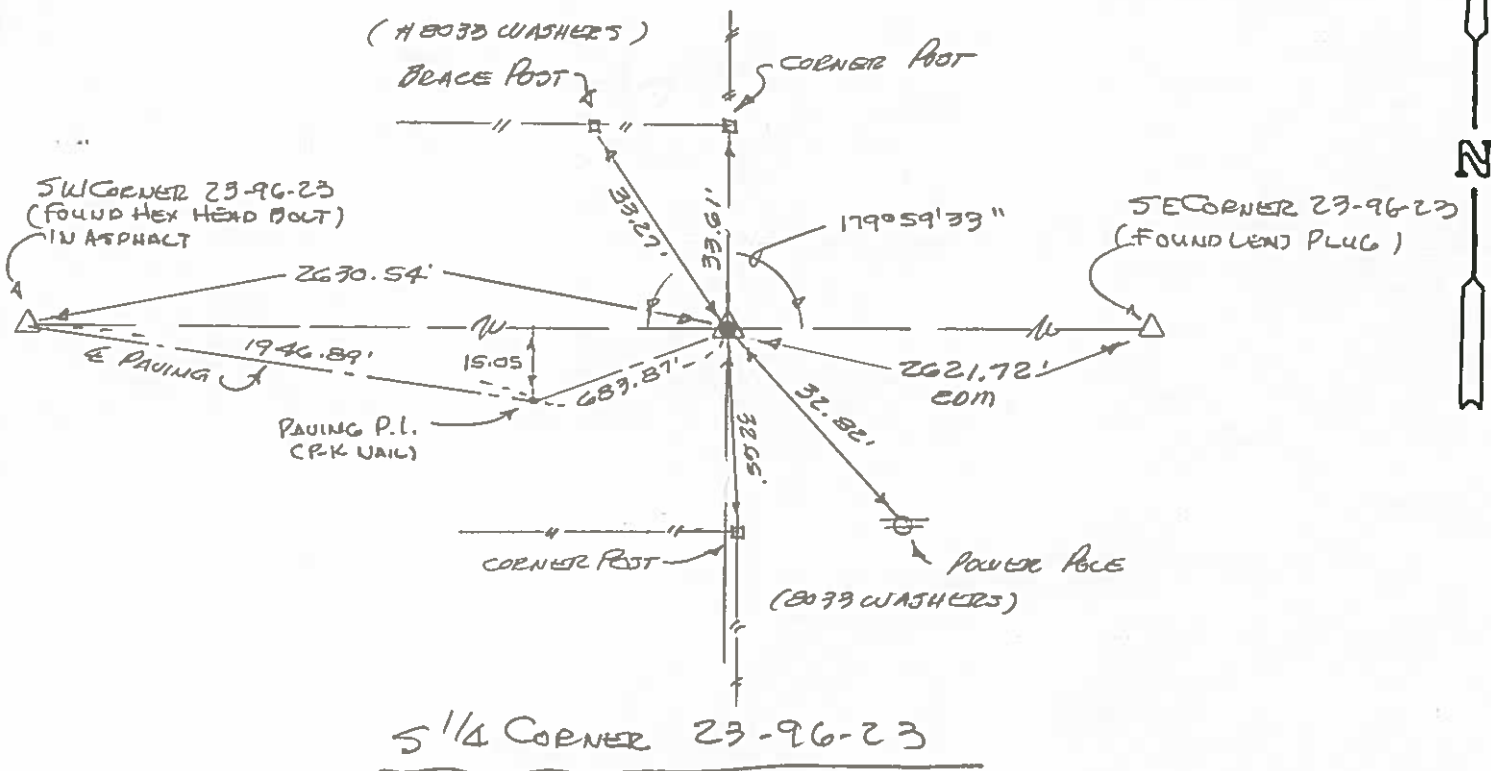 (#8033 WASHERS)
BRACE POST
CORNER POST
N
SW CORNER 23-96-23
(FOUND HEX HEAD BOLT)
IN ASPHALT
33.27'
33.61'
179°59'33"
SE CORNER 23-96-23
(FOUND PLUG)
2630.54'
1946.89'
℄ PAVING
15.05
683.87'
2621.72'
EDM
32.82'
PAVING P.I.
(P-K NAIL)
CORNER POST
POWER POLE
(8033 WASHERS)
S 1/4 CORNER 23-96-23